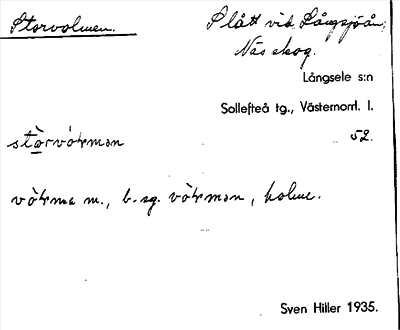 Storvolmen. Slått vid Långsjöån,
Näs skog.
Långsele s:n
Sollefteå tg., Västernorrl. l.
52.
m., b. sg. , holme.
Sven Hiller 1935.